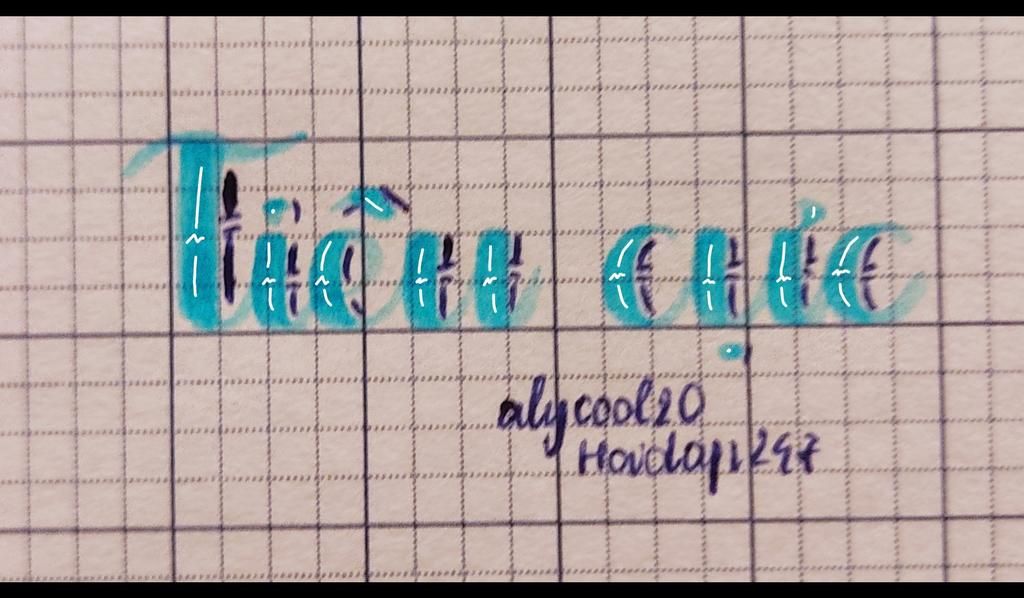 Tiêu cực
alycool20
Hoidap247